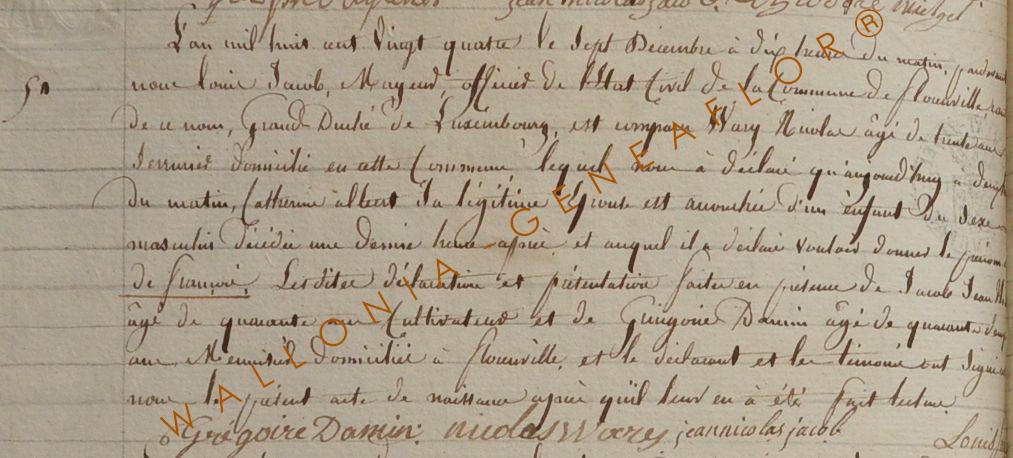 L'an mil huit cent vingt quatre le sept Decembre à dix heures du matin, pardevant
50 nous Louis Jacob, Mayeur, officier de l'Etat Civil de la Commune de flouville, canton
de ce nom, Grand Duché de Luxembourg, est comparu Wary Nicolas âgé de trente ans
serrurier domicilié en cette Commune, lequel nous à déclaré qu'aujourd'huy à
du matin, Catherine albert sa légitime Epouse est accouchée d'un enfant du sexe
masculin décédé une demie heure après et auquel il a déclaré vouloir donner le prénom
de françois. Lesdites déclaration et présentation faites en présence de Jacob Jean
âgé de quarante ans Cultivateur et de Damin âgé de quarante
ans Menuisier domiciliés à flouville, et le déclarant et les témoins ont signé
nous le présent acte de naissance après qu'il leur en à été fait lecture
Grégoire Damin nicolas Warÿ jean nicolas jacob Louis
WALLONIA GENEAFLOR ®